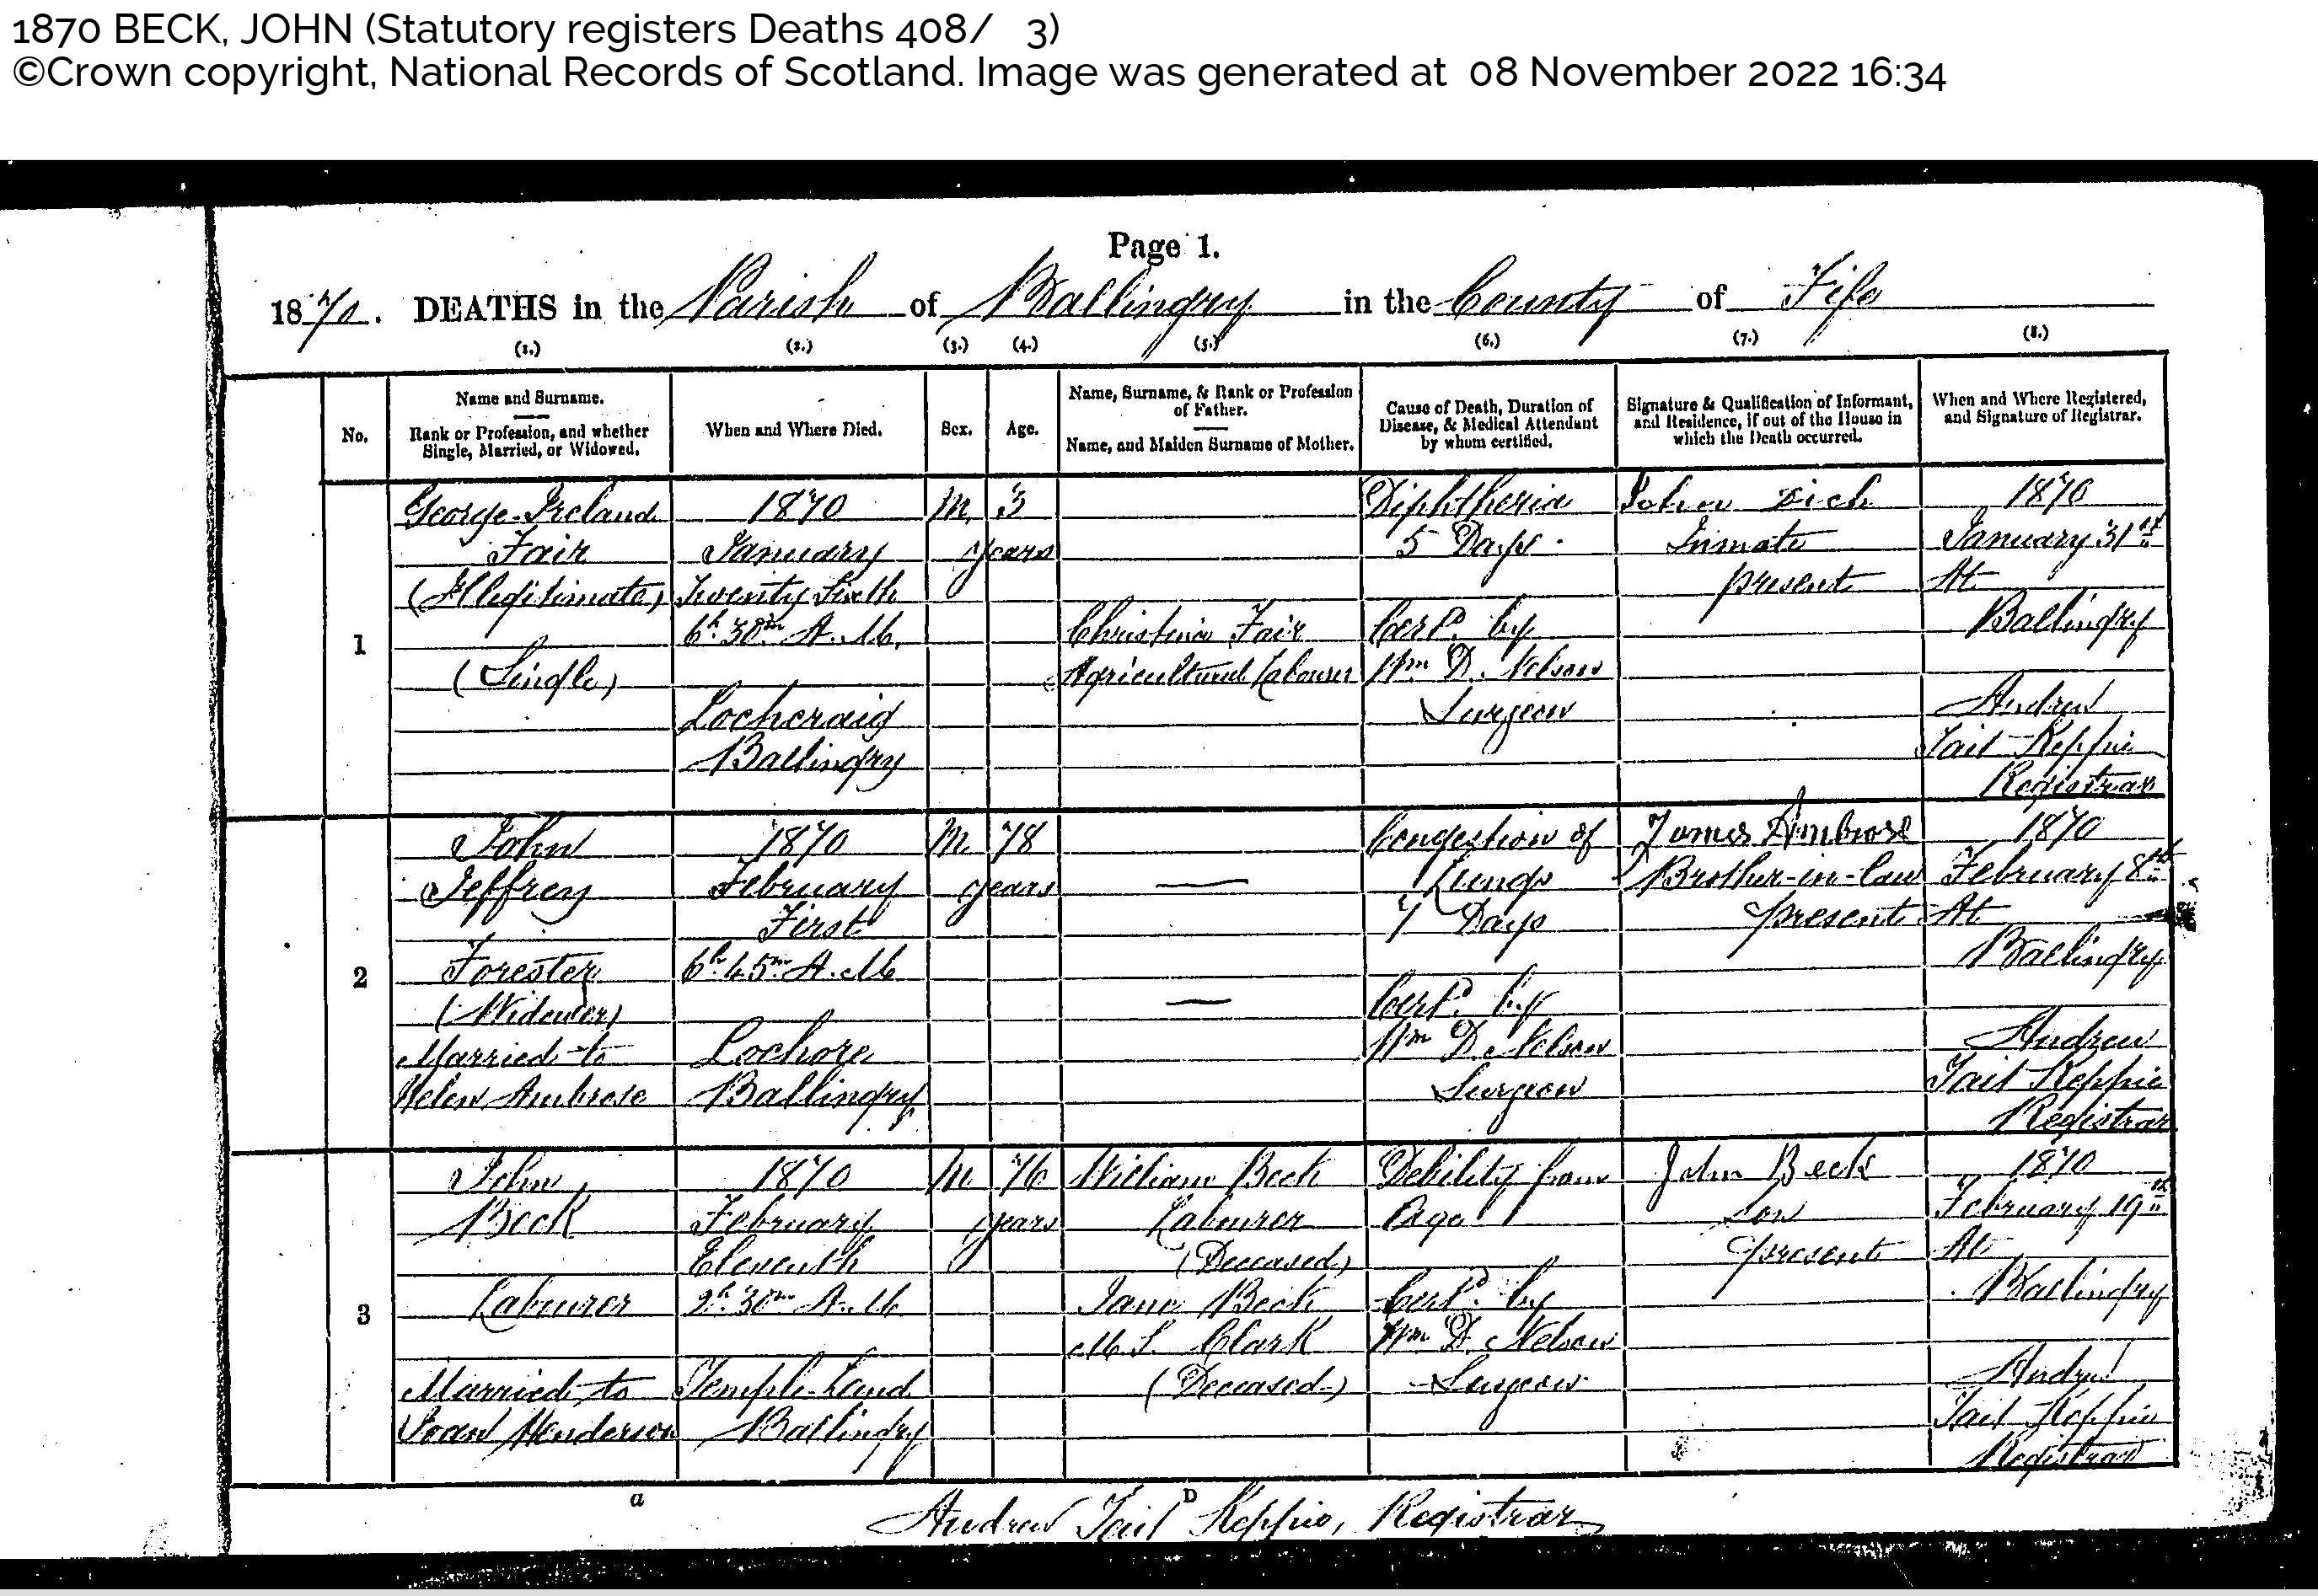 1870 BECK, JOHN (Statutory registers Deaths 408/ 3)
©Crown copyright, National Records of Scotland. Image was generated at 08 November 2022 16:34
Page 1.
1870. DEATHS in the Parish of Ballingry in the County of Fife
(1.) (2.) (3.) (4.) (5.) (6.) (7.) (8.)
No.
Name and Surname.
Rank or Profession, and whether
Single, Married, or Widowed.
When and Where Died.
Sex.
Age.
Name, Surname, & Rank or Profession
of Father.
Name, and Maiden Surname of Mother.
Cause of Death, Duration of
Disease, & Medical Attendant
by whom certified.
Signature & Qualification of Informant,
and Residence, if out of the House in
which the Death occurred.
When and Where Registered,
and Signature of Registrar.
1
George Ireland
Fair
(Illegitimate)
(Single)
1870
January
Twenty Sixth
6h. 30m. A.M.
Lochcraig
Ballingry
M.
3
years
Christina Fair
Agricultural Labourer
Diphtheria
5 Days.
Certd. by
Wm. D. Nelson
Surgeon
John Dick
Inmate
present
1870
January 31st
At
Ballingry
Andrew
Tait Keppie
Registrar
2
John
Jeffrey
Forester
(Widower)
Married to
Helen Ambrose
1870
February
First
6h. 45m. A.M.
Lochore
Ballingry
M.
78
years
Congestion of
Lungs
7 Days
Certd. by
Wm D. Nelson
Surgeon
James Ambrose
Brother-in-law
present
1870
February 8th
At
Ballingry
Andrew
Tait Keppie
Registrar
3
John
Beck
Labourer
Married to
Joan Henderson
1870
February
Eleventh
2h. 30m. A.M.
Temple-Land
Ballingry
M.
76
years
William Beck
Labourer
(Deceased)
Jane Beck
M.S. Clark
(Deceased)
Debility from
Age
Certd. by
Wm. D. Nelson
Surgeon
John Beck
Son
present
1870
February 19th
At
Ballingry
Andrew
Tait Keppie
Registrar
a
D
Andrew Tait Keppie, Registrar